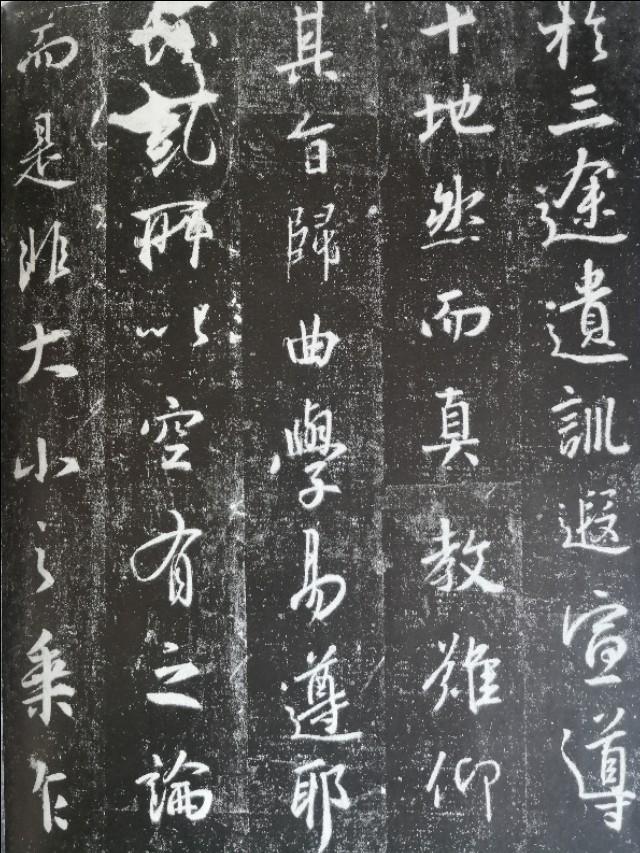 於三途遺訓遐宣導
十地然而真教難仰
其旨歸曲學易遵耶
紛糺所以空有之論
而是非大小之乘乍